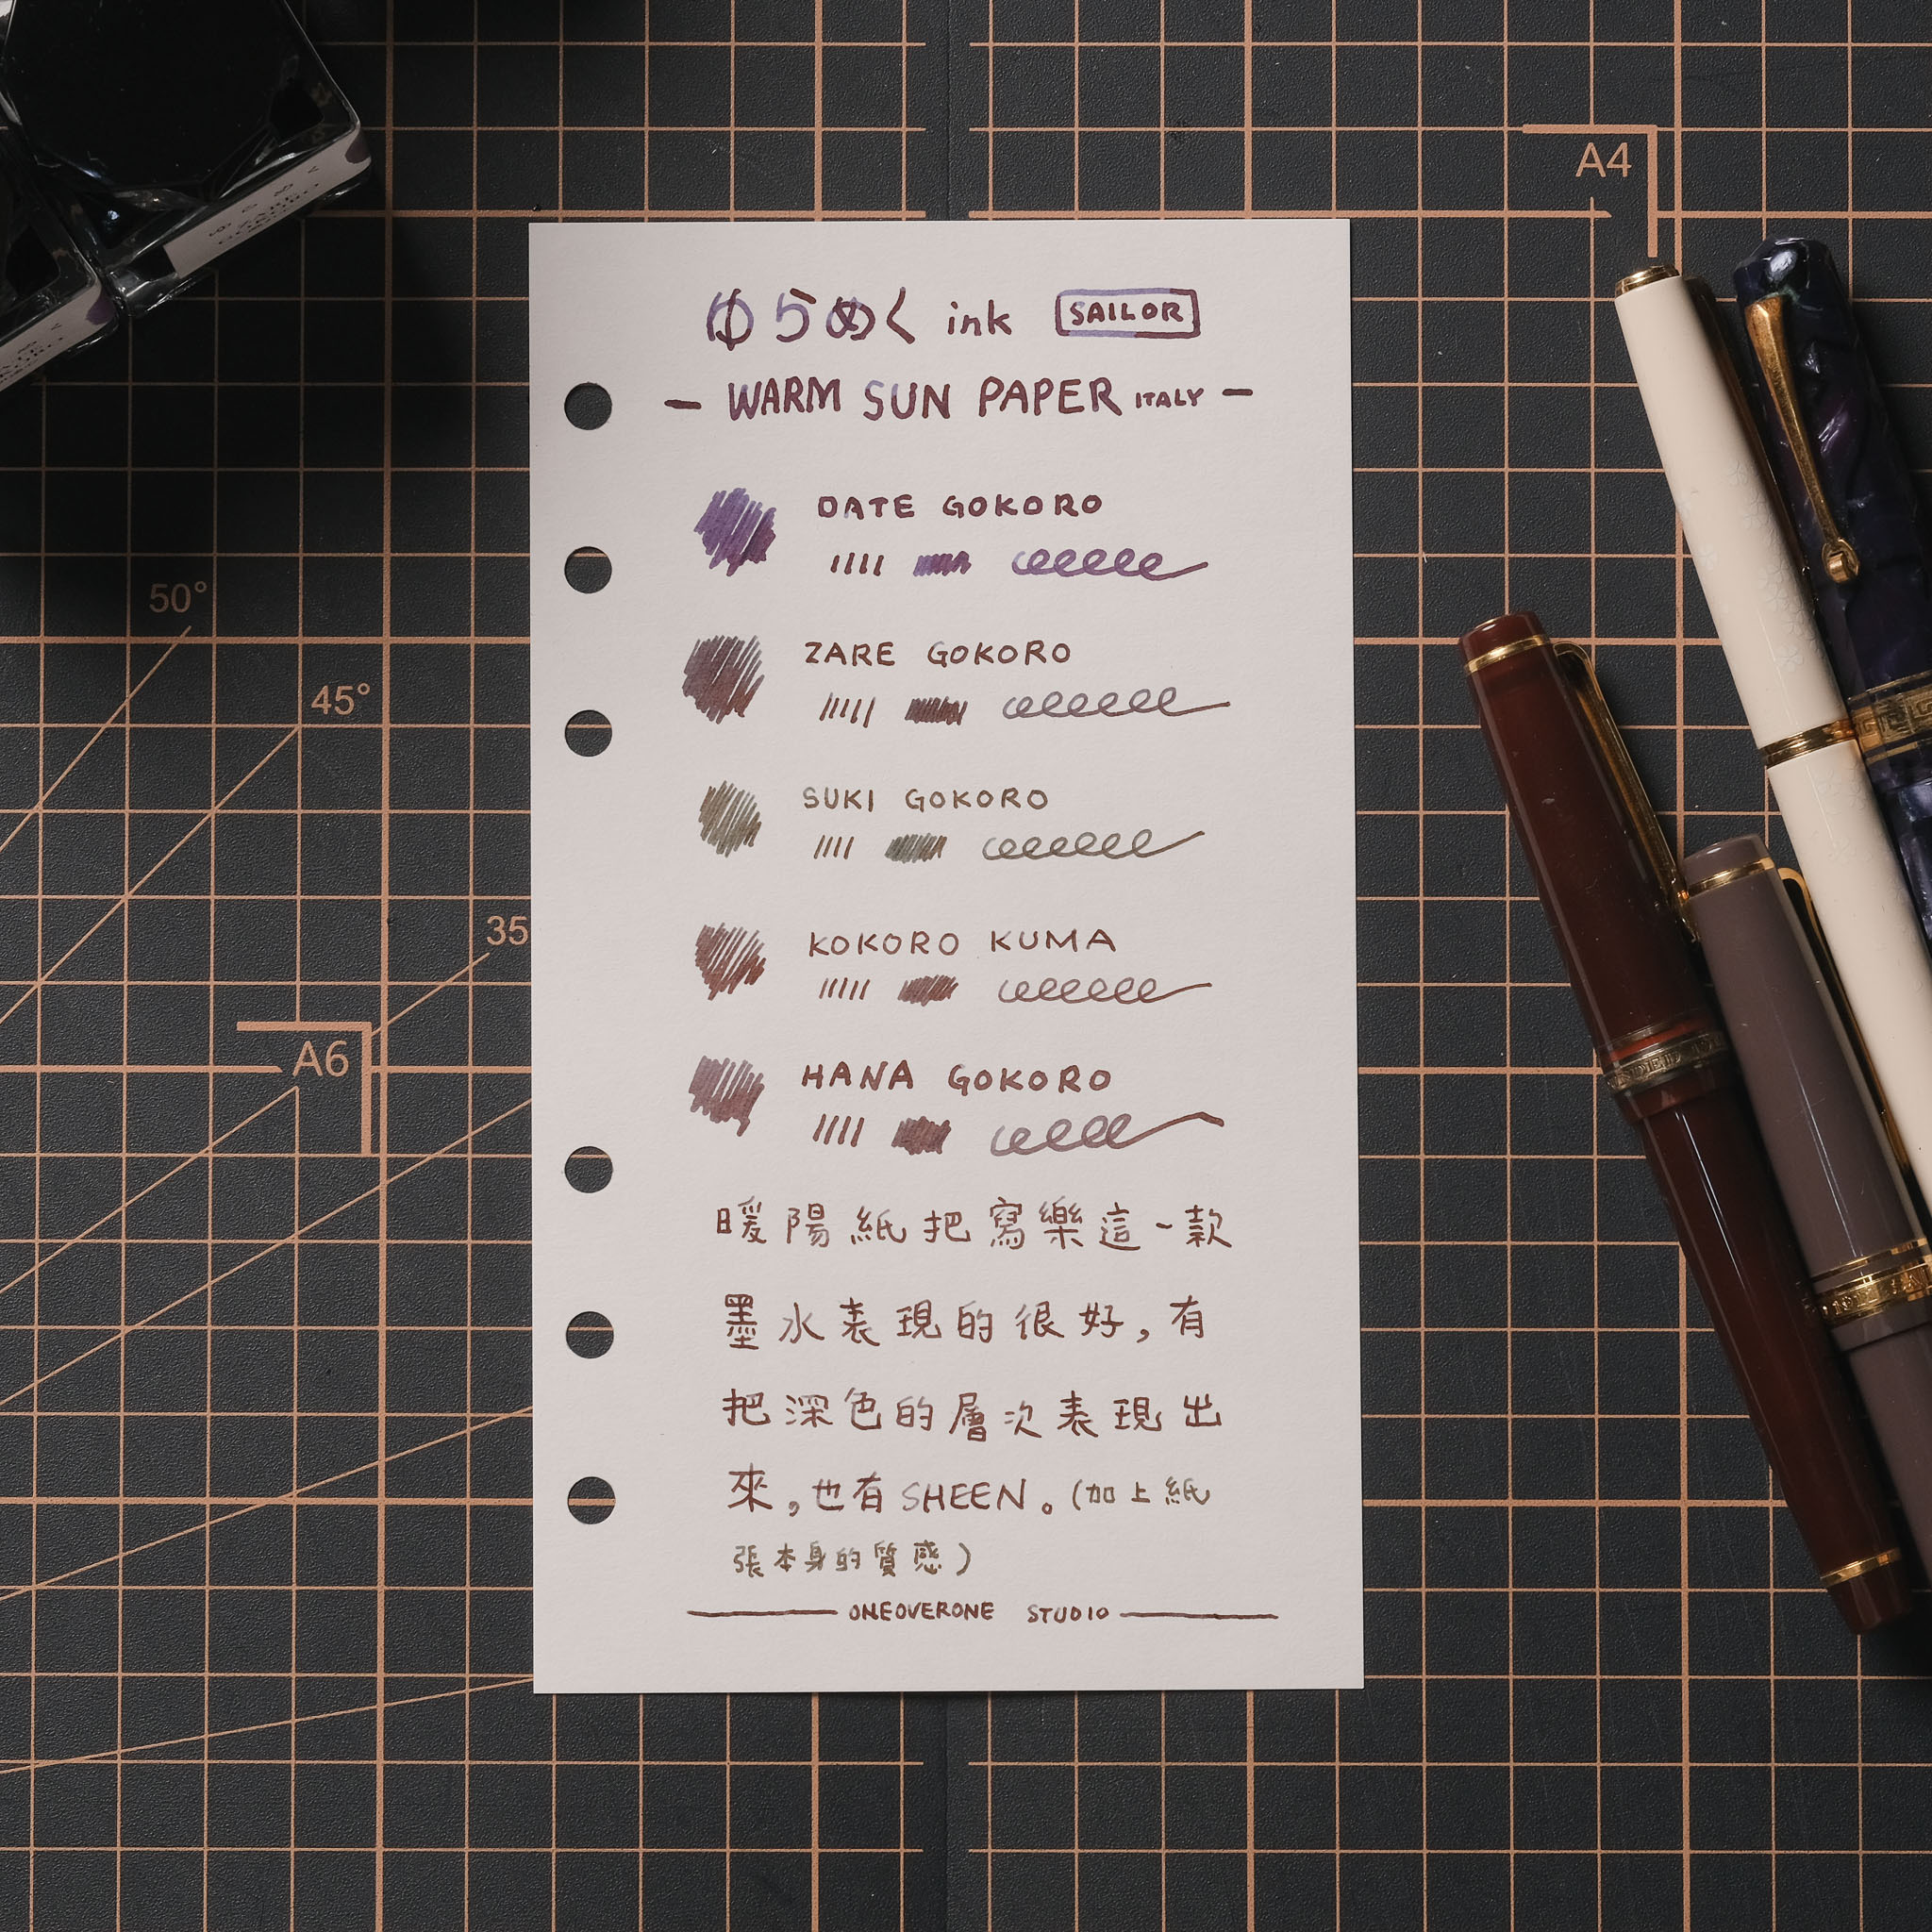 ゆらめく ink SAILOR
- WARM SUN PAPER ITALY -
DATE GOKORO
ZARE GOKORO
SUKI GOKORO
KOKORO KUMA
HANA GOKORO
暖陽紙把寫樂這一款
墨水表現的很好,有
把深色的層次表現出
來,也有SHEEN。(加上紙
張本身的質感)
ONEOVERONE STUDIO
A4
50°
45°
35
A6